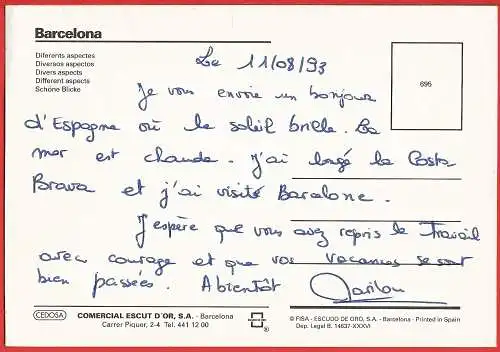 Barcelona
Diferents aspectes
Diversos aspectos
Divers aspects
Different aspects
Schöne Blicke
695
Le 11/08/93
Je vous envoie un bonjour
d'Espagne où le soleil brille. La
mer est chaude. J'ai longé la Costa
Brava et j'ai visité Barcelone.
J'espère que vous avez repris le travail
avec courage et que vos vacances se sont
bien passées. A bientôt Marilou
CEDOSA
COMERCIAL ESCUT D'OR, S.A. - Barcelona
Carrer Piquer, 2-4 Tel. 441 12 00
© FISA - ESCUDO DE ORO, S.A. - Barcelona - Printed in Spain
Dep. Legal B. 14637-XXXVI